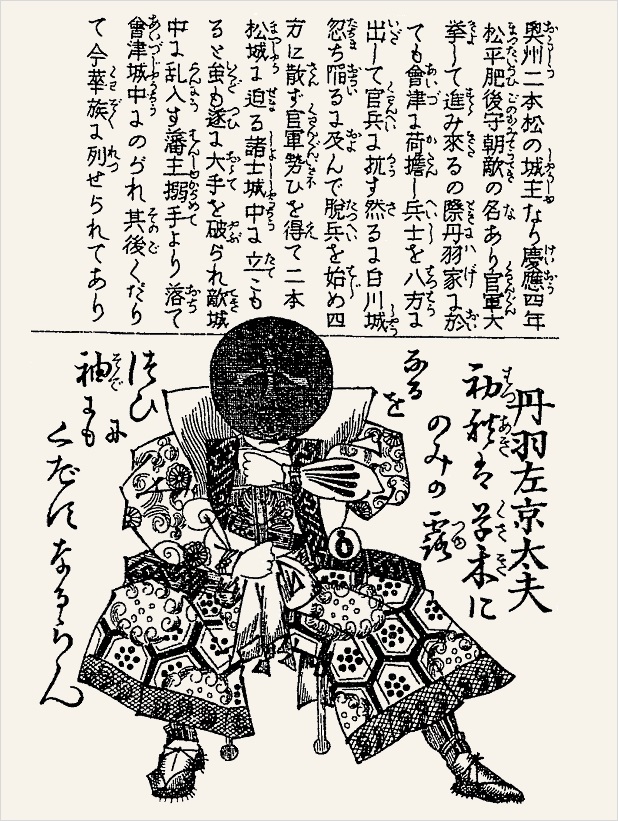 奥州二本松の城主なり慶應四年
松平肥後守朝敵の名あり官軍大
挙して進み來るの際丹羽家は於
ても會津に荷擔し兵士を八方に
出して官兵に抗す然るに白川城
忽ち陥るに及んで脱兵を始め四
方に散ず官軍勢ひを得て二本
松城に迫る諸士城中に立こも
ると虽も遂に大手を破られ敵城
中に乱入す藩主搦手より落て
會津城中にのがれ其後くだり
て今華族に列せられてあり
丹羽左京太夫
初秋は草木に
のみの露
なる
を
つひに
袖にも
くだけなるらん